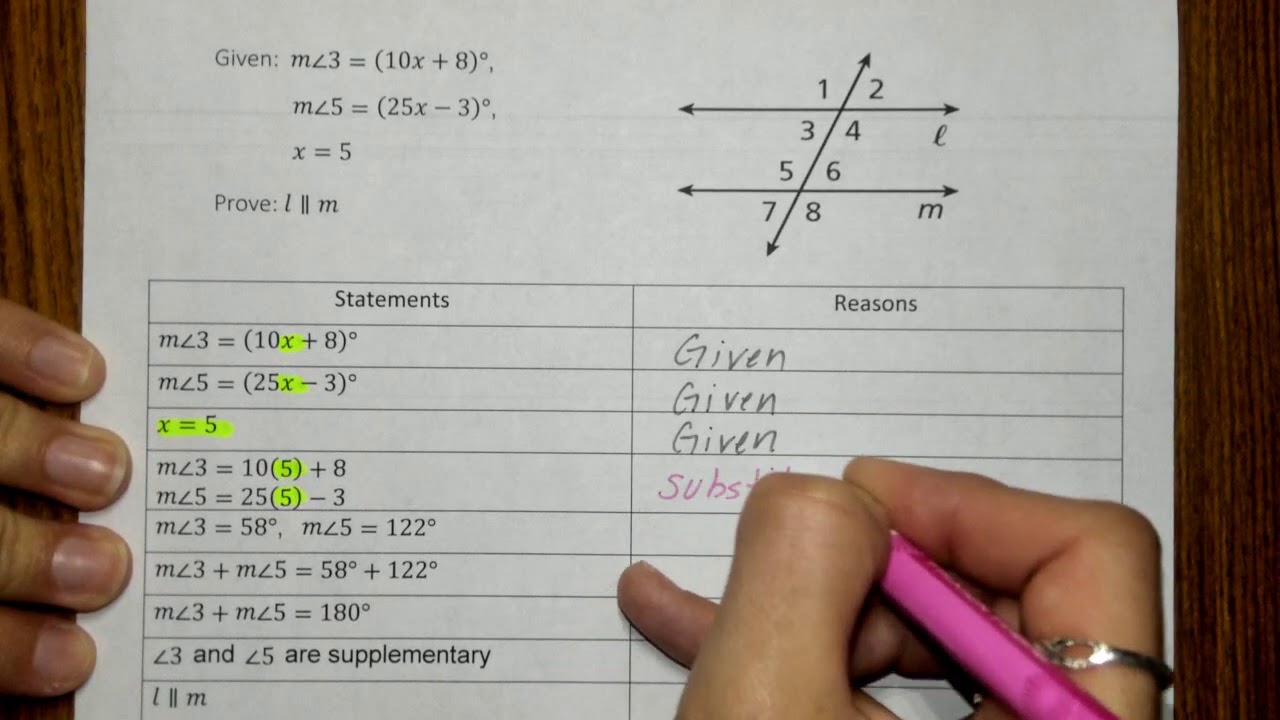 Given: m∠3 = (10x + 8)°,
m∠5 = (25x − 3)°,
x = 5
Prove: l ∥ m
1 2
3 4 ℓ
5 6
7 8 m
Statements Reasons
m∠3 = (10x + 8)° Given
m∠5 = (25x − 3)° Given
x = 5 Given
m∠3 = 10(5) + 8
m∠5 = 25(5) − 3
m∠3 = 58°, m∠5 = 122°
m∠3 + m∠5 = 58° + 122°
m∠3 + m∠5 = 180°
∠3 and ∠5 are supplementary
l ∥ m